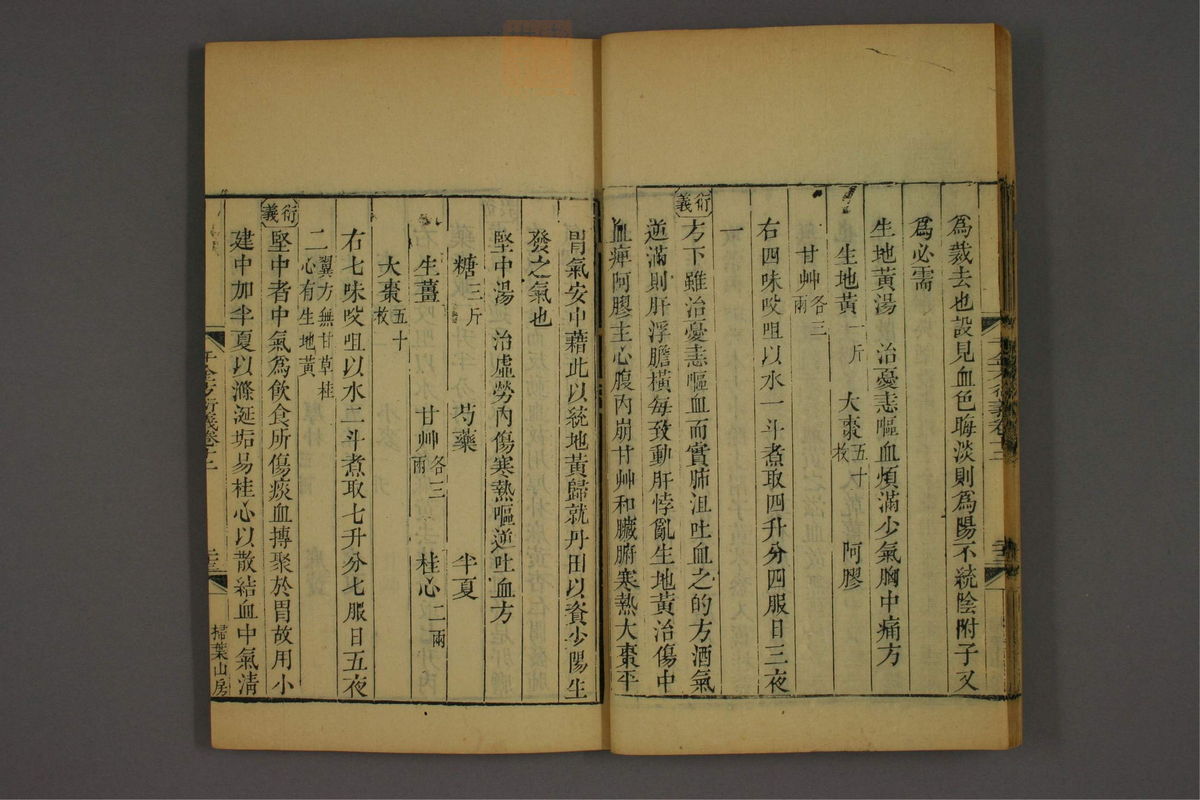 爲裁去也設見血色晦淡則爲陽不統陰附子又
爲必需
生地黃湯 治憂恚嘔血煩滿少氣胸中痛方
生地黃一斤 大棗五十枚 阿膠
甘艸各三兩
右四味㕮咀以水一斗煮取四升分四服日三夜
一
衍義
方下雖治憂恚嘔血而實肺沮吐血之的方酒氣
逆滿則肝浮膽橫每致動肝悖亂生地黃治傷中
血痺阿膠主心腹內崩甘艸和臟腑寒熱大棗平
胃氣安中藉此以統地黃歸就丹田以資少陽生
發之氣也
堅中湯 治虛勞內傷寒熱嘔逆吐血方
糖三斤 芍藥 半夏
生薑 甘艸各三兩 桂心二兩
大棗五十枚
右七味㕮咀以水二斗煮取七升分七服日五夜
二翼方無甘草桂心有生地黃
衍義
堅中者中氣爲飲食所傷痰血搏聚於胃故用小
建中加半夏以滌涎垢易桂心以散結血中氣淸
千金方衍義卷十二
掃葉山房